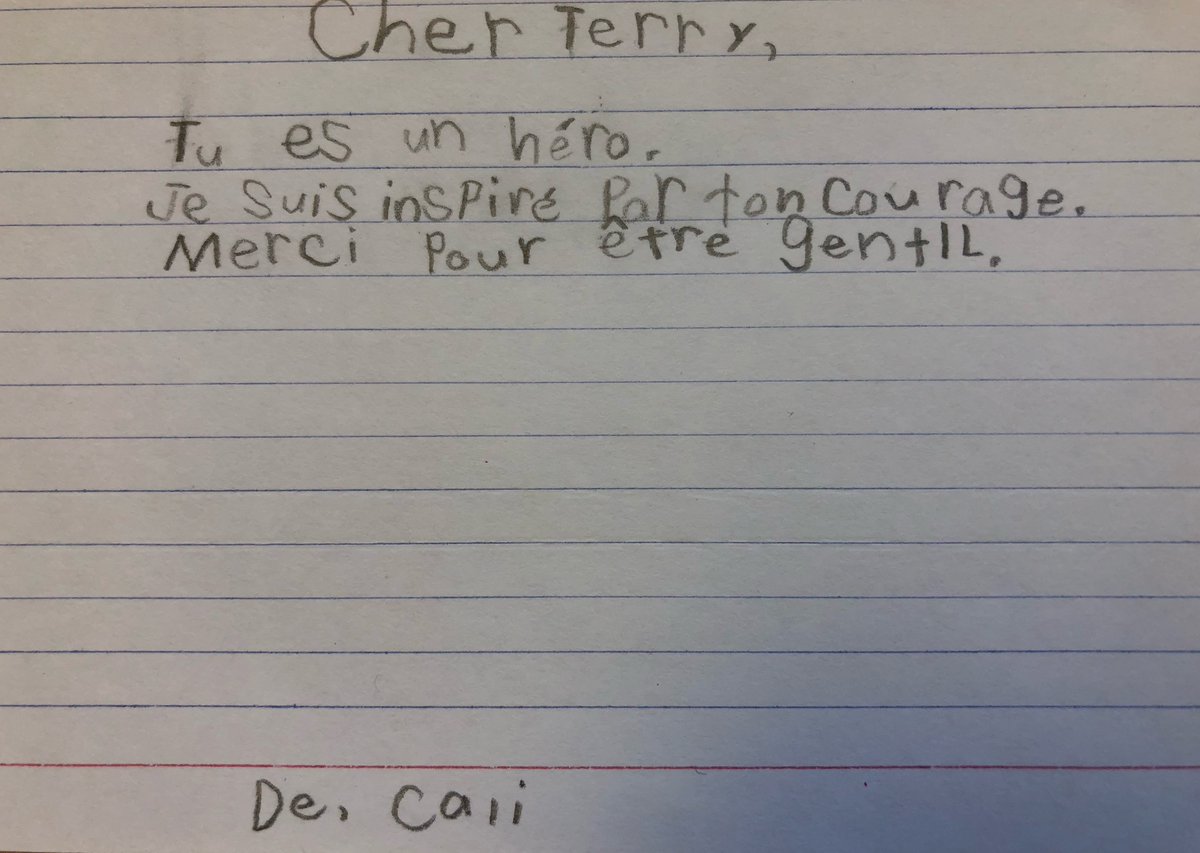 Cher Terry,
Tu es un héro.
Je suis inspiré par ton courage.
Merci pour être gentil.
De, Calli